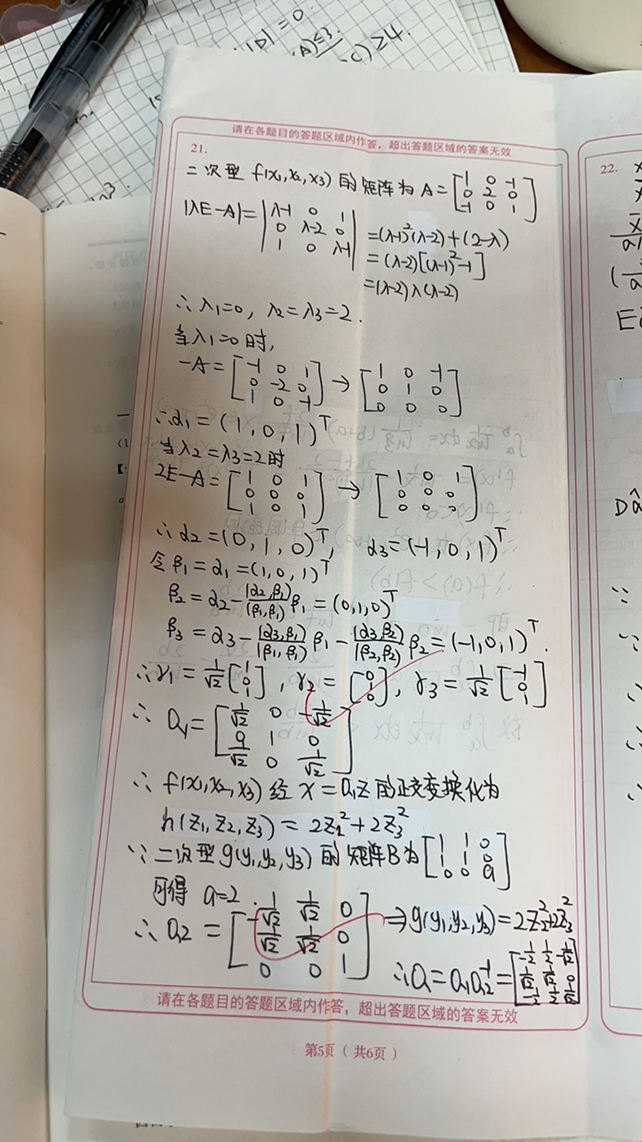 |D|=0.
(A)≤3
C)≥4.
请在各题目的答题区域内作答，超出答题区域的答案无效
21.
二次型 f(x₁,x₂,x₃) 的矩阵为 A = [1 0 -1; 0 2 0; -1 0 1]
|λE-A| = |λ-1 0 1; 0 λ-2 0; 1 0 λ-1| = (λ-1)²(λ-2)+(2-λ)
= (λ-2)[(λ-1)²-1]
= (λ-2)λ(λ-2)
∴ λ₁=0, λ₂=λ₃=2.
当λ₁=0时,
-A = [-1 0 1; 0 -2 0; 1 0 -1] → [1 0 -1; 0 1 0; 0 0 0]
∴ α₁ = (1, 0, 1)ᵀ
当λ₂=λ₃=2时
2E-A = [1 0 1; 0 0 0; 1 0 1] → [1 0 1; 0 0 0; 0 0 0]
∴ α₂ = (0, 1, 0)ᵀ, α₃ = (-1, 0, 1)ᵀ
令 β₁ = α₁ = (1, 0, 1)ᵀ
β₂ = α₂ - (α₂,β₁)/(β₁,β₁) β₁ = (0,1,0)ᵀ
β₃ = α₃ - (α₃,β₁)/(β₁,β₁) β₁ - (α₃,β₂)/(β₂,β₂) β₂ = (-1,0,1)ᵀ.
∴ γ₁ = 1/√2 [1; 0; 1], γ₂ = [0; 1; 0], γ₃ = 1/√2 [-1; 0; 1]
∴ Q₁ = [1/√2 0 -1/√2; 0 1 0; 1/√2 0 1/√2]
∴ f(x₁,x₂,x₃) 经 x = Q₁z 的正交变换化为
h(z₁, z₂, z₃) = 2z₂² + 2z₃²
∵ 二次型 g(y₁,y₂,y₃) 的矩阵B为 [1 1 0; 1 1 0; 0 0 a]
可得 a=2.
∴ Q₂ = [-1/√2 1/√2 0; 1/√2 1/√2 0; 0 0 1] ⇒ g(y₁,y₂,y₃) = 2z₂²+2z₃²
∴ Q = Q₁Q₂⁻¹ = [-1/2 1/2 -1/√2; 1/√2 1/√2 0; -1/2 1/2 1/√2]
请在各题目的答题区域内作答，超出答题区域的答案无效
第5页（共6页）
22.